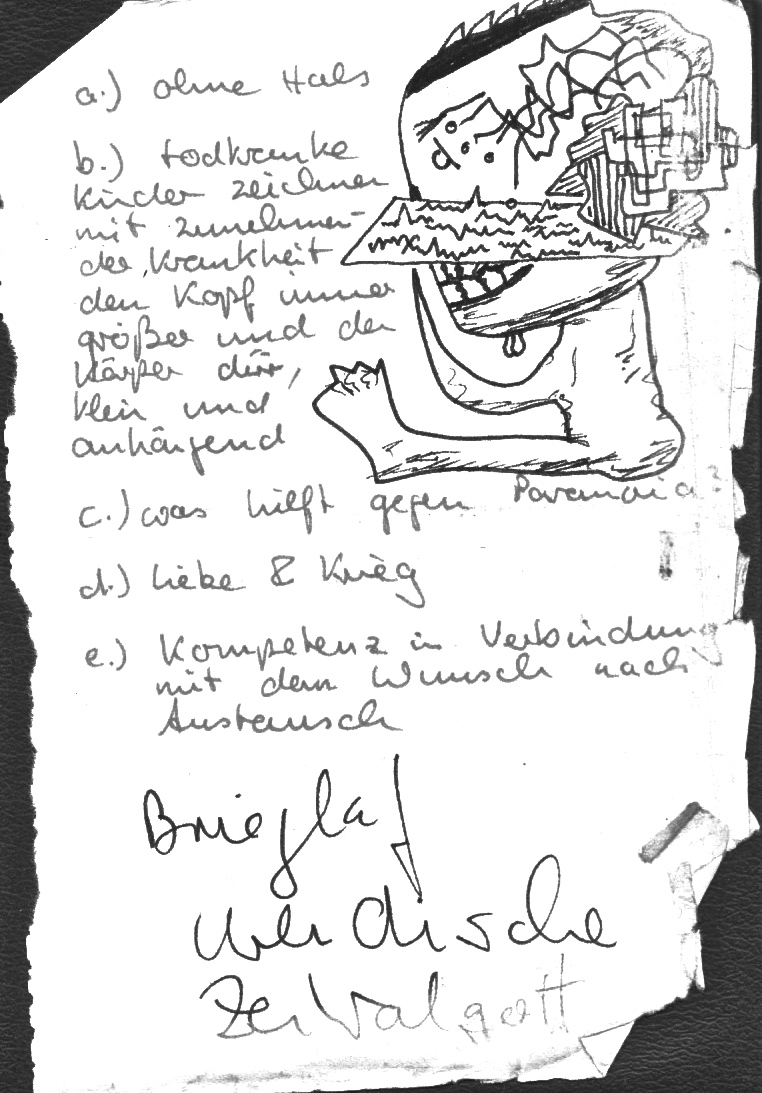 a.) ohne Hals
b.) todkranke
Kinder zeichnen
mit zunehmen-
der Krankheit
den Kopf immer
größer und den
Körper dürr,
klein und
anhängend
c.) was hilft gegen Paranoia?
d.) Liebe & Krieg
e.) Kompetenz in Verbindung
mit dem Wunsch nach
Austausch